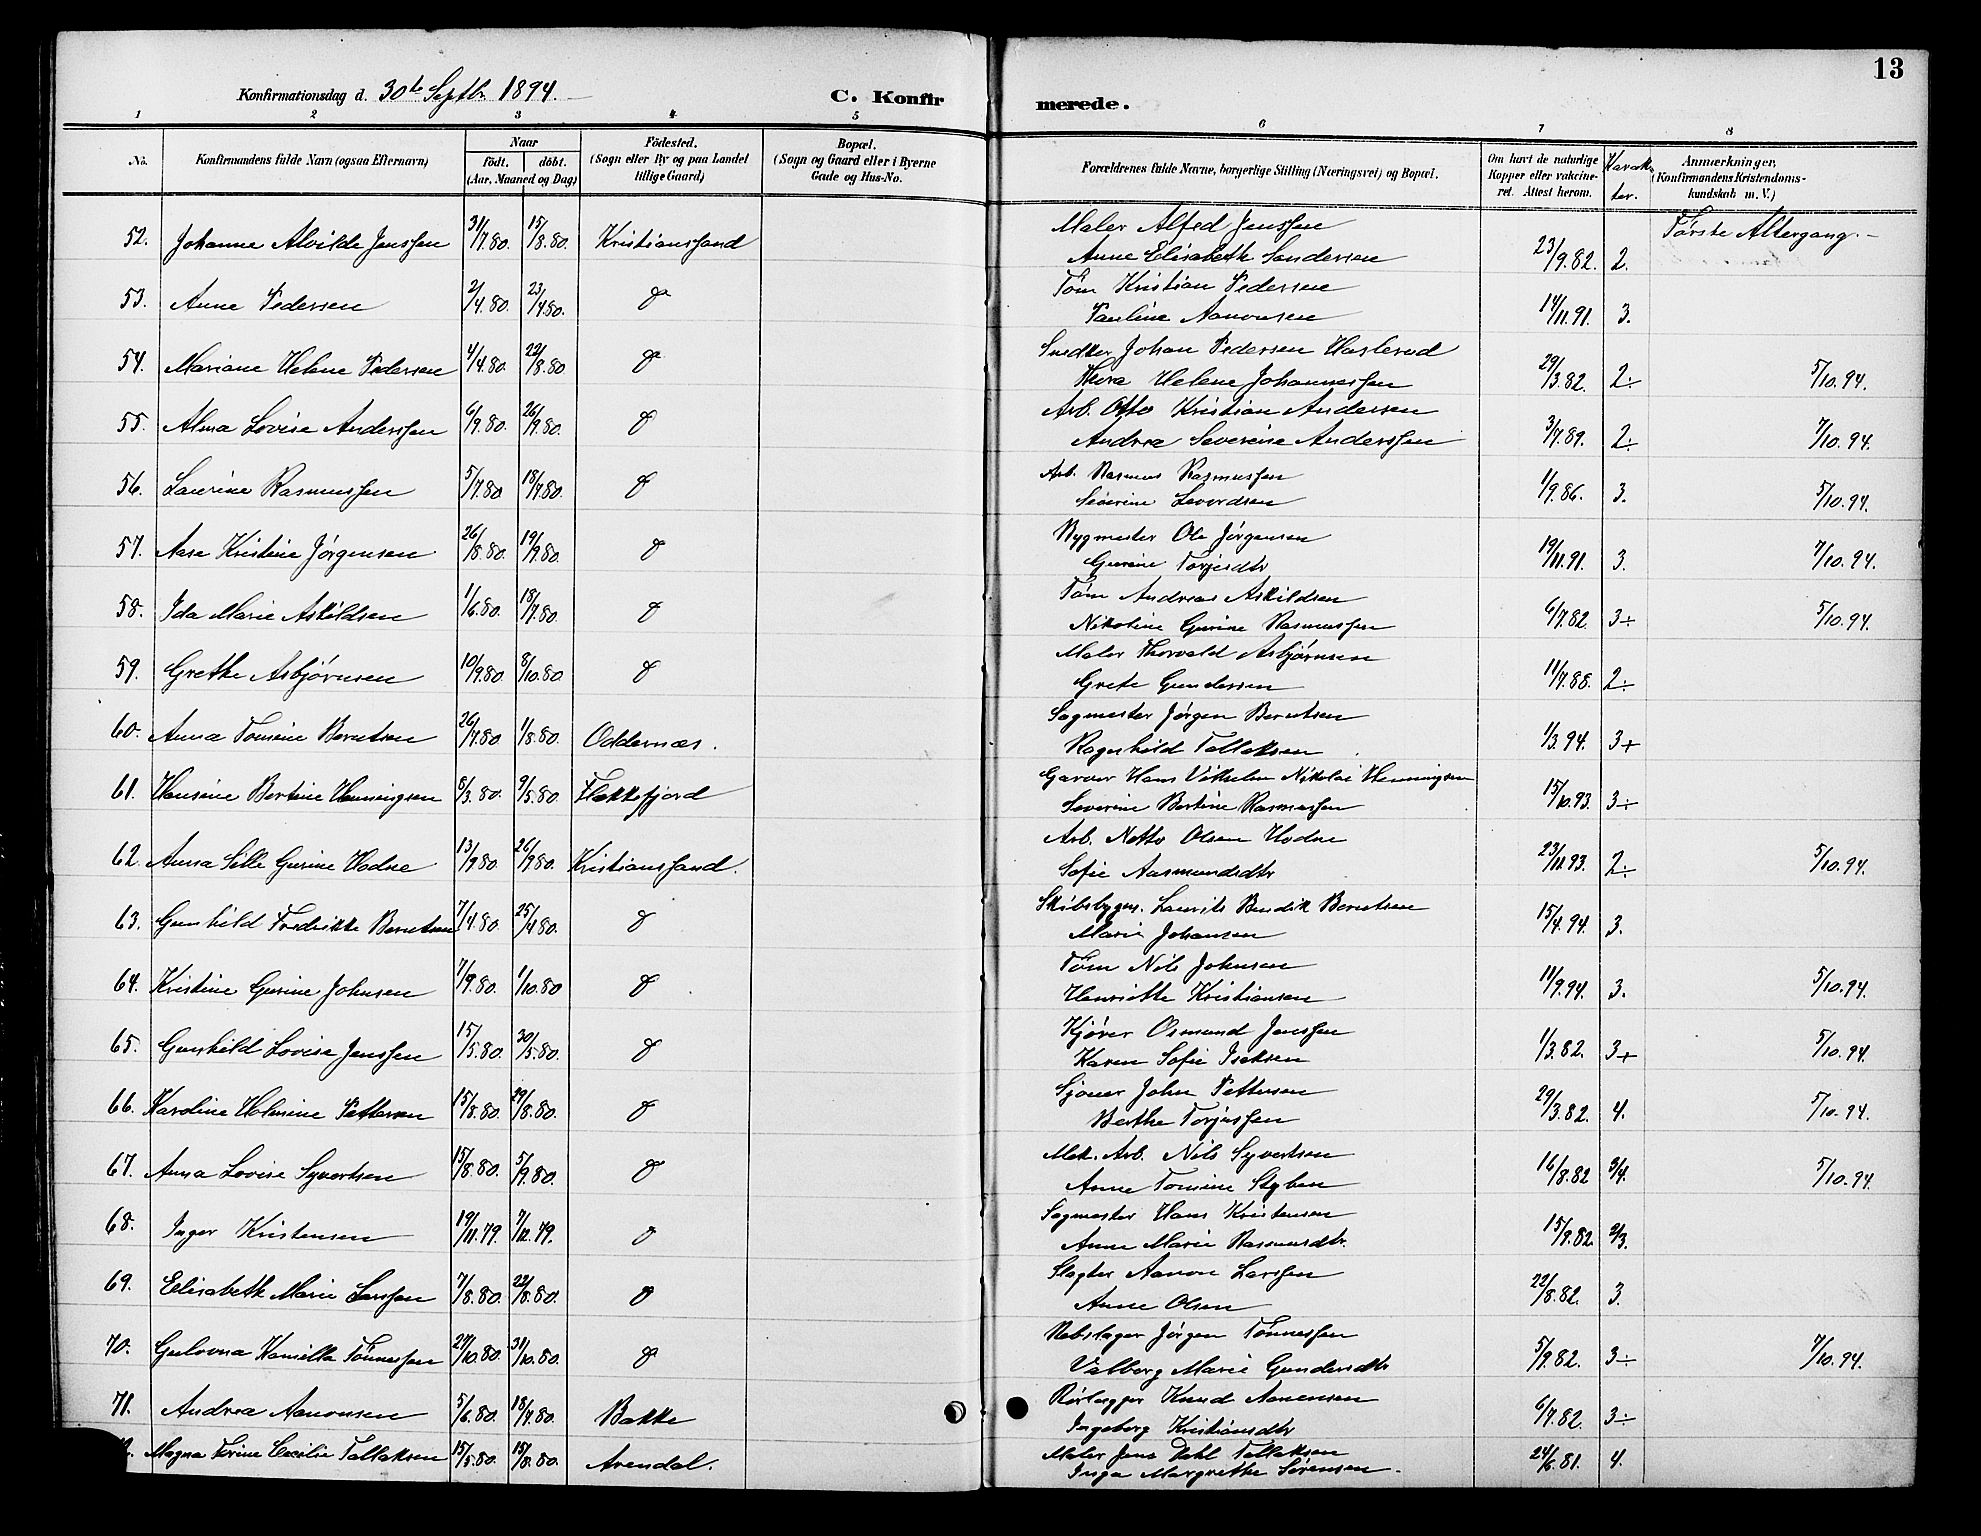 Konfirmationsdag d. 30te Septbr 1894.
C. Konfirmerede.
13
1 2 3 4 5 6 7 8
No. Konfirmandens fulde Navn (ogsaa Efternavn) Naar født. døbt. (Aar, Maaned og Dag) Fødested. (Sogn eller By og paa Landet tillige Gaard) Bopæl. (Sogn og Gaard eller i Byerne Gade og Hus-No. Forældrenes fulde Navne, borgerlige Stilling (Næringsvei) og Bopæl. Om havt de naturlige Kopper eller vakcineret. Attest herom. Karakter. Anmærkninger, (Konfirmandens Kristendomskundskab m. V.)
Første Altergang.
52. Johanne Alvilde Jenssen 31/7.80. 15/8.80. Kristianssand Maler Alfed Jenssen
Anne Elisabeth Sandersen 23/9.82. 2.
53. Anne Pedersen 2/4.80. 23/4.80. d Tøm Kristian Pedersen
Pauline Aanonsen 14/11.91. 3.
54. Mariane Helene Pedersen 4/4.80. 22/8.80 d Snedker Johan Pedersen Haslerud
Thora Helene Johannessen 29/3.82. 2÷ 5/10.94.
55. Alma Lovise Anderssen 6/9.80. 26/9.80. d Arb. Otto Kristian Andersen
Andrea Severine Anderssen 3/7.89. 2÷ 7/10.94.
56. Laurine Rasmussen 5/7.80. 18/7.80. d Arb. Rasmus Rasmussen
Severine Levordsen 1/9.86. 3. 5/10.94.
57. Aase Kristine Jørgensen 26/8.80. 19/9.80. d Bygmester Ole Jørgensen
Gurine Torjusdtr 19/11.91. 3. 7/10.94.
58. Ida Marie Askildsen 1/6.80. 18/7.80. d Tøm Andreas Askildsen
Nikoline Gurine Rasmussen 6/7.82. 3÷ 5/10.94.
59. Grethe Asbjørnsen 10/9.80. 8/10.80 d Maler Thorvald Asbjørnsen
Grete Gundersen 11/7.88. 2÷
60. Anna Tomine Berntsen 26/7.80 1/8.80. Oddernæs. Sagmester Jørgen Berntsen
Ragnhild Tallaksen 1/3.94. 3+
61. Hansine Bertine Henningsen 8/3.80. 9/5.80. Flekkefjord Garver Hans Vilhelm Nikolai Henningsen
Severine Bertine Rasmussen 15/10.93. 3÷
62. Anna Sille Gurine Hodne 13/9.80 26/9.80. Kristianssand. Arb. Netto Olsen Hodne
Sofie Aasmundsdtr 23/11.93. 2÷ 5/10.94.
63. Gunhild Fredrikke Berntsen 7/4.80. 25/4.80. d Skibsbygm. Laurits Bendik Berntsen
Marie Johansen 15/4.94. 3.
64. Kristine Gurine Johnsen 7/9.80. 1/10.80 d Tøm Nils Johnsen
Henriette Kristiansen 11/9.94. 3. 5/10.94.
65. Gunhild Lovise Jenssen 15/5.80. 30/5.80. d Kjører Osmund Jenssen
Karen Sofie Isaksen 1/3.82. 3+ 5/10.94.
66. Karoline Helmine Pettersen 15/8.80. 29/8.80. d Sjømr John Pettersen
Berthe Torjussen 29/3.82. 4. 5/10.94.
67. Anna Lovise Syvertsen 15/8.80. 5/9.80. d Mek. Arb. Nils Syvertsen
Anne Tomine Styben 16/8.82 3/4. 5/10.94.
68. Inger Kristensen 19/11.79. 7/12.79. d Sagmester Hans Kristensen
Anne Marie Rasmusdtr. 15/9.82. 2/3.
69. Elisabeth Marie Larssen 7/8.80. 22/8.80. d Slagter Aanon Larssen
Anne Olsen 22/8.82. 3.
70. Gulovna Kamilla Tønnessen 27/10.80. 31/10.80. d Rebslager Jørgen Tønnessen
Valborg Marie Gundersdtr 5/9.82. 3÷ 7/10.94.
71. Andrea Aanonsen 5/6.80. 18/7.80. Bakke Rørlægger Knud Aanensen
Ingeborg Kristiansdtr 6/7.82. 3÷
Magna Torine Cecilie Tallaksen 15/5.80. 15/8.80. Arendal. Maler Jens Dahl Tallaksen
Inga Margrethe Sørensen. 24/6.81. 4.